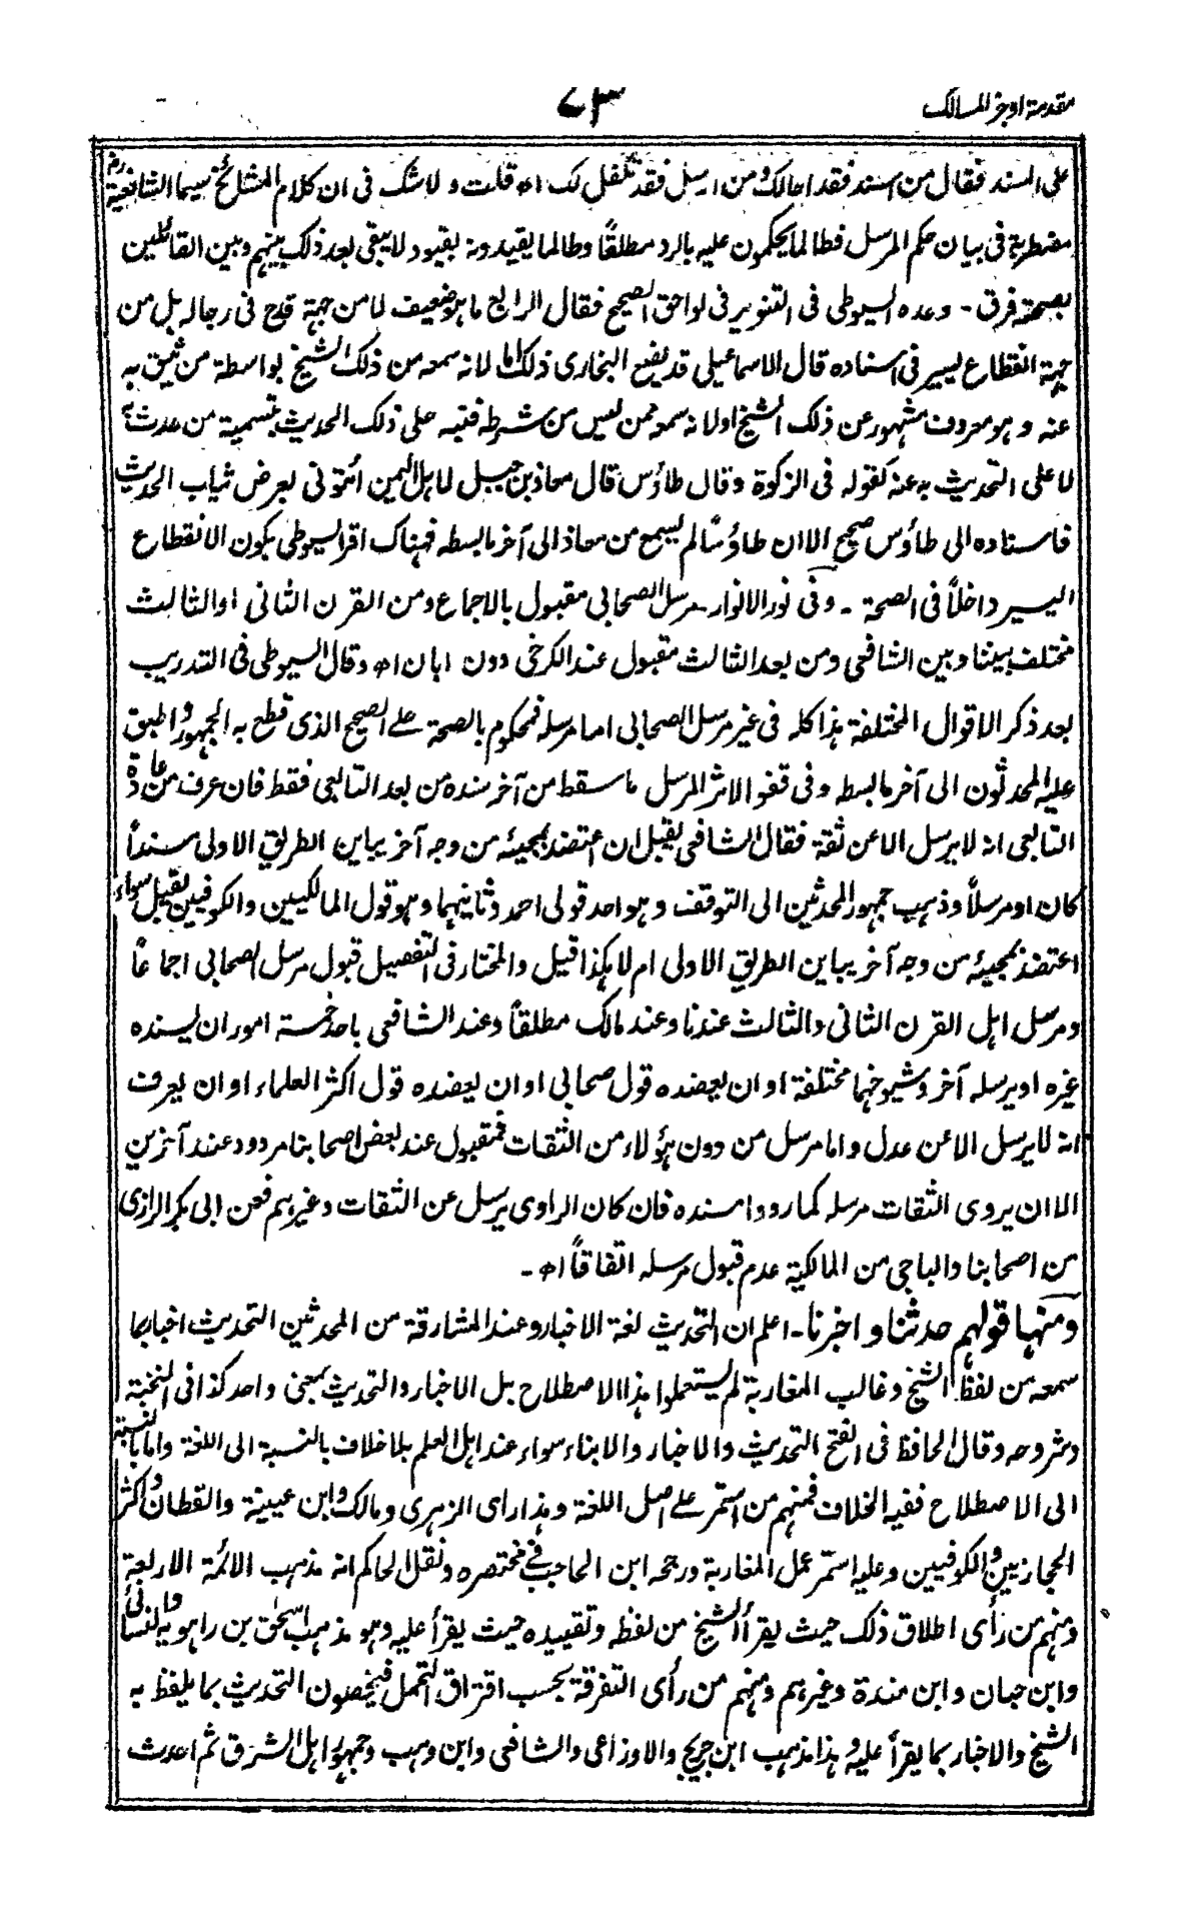 مقدمة اوجز المسالك
٧٣
على المسند فقال من اسند فقد احالك ومن ارسل فقد تكفل لك اه قلت ولا شك فى ان كلام المشائخ سيما الشافعية رض
مضطربة فى بيان حكم المرسل فطالما يحكمون عليه بالرد مطلقاً وطالما يقيدونه بقيود لا يبقى بعد ذلك بينهم وبين القائلين
بصحته فرق - وعده السيوطى فى التنوير فى لواحق الصحيح فقال الرابع ما هو ضعيف لا من جهة قدح فى رجاله بل من
جهة انقطاع يسير فى اسناده قال الاسماعيلى قد يضع البخارى ذلك اما لانه سمعه من ذلك الشيخ بواسطة من يثق به
عنه وهو معروف مشهور عن ذلك الشيخ او لانه سمعه ممن ليس من شرطه فنبه على ذلك الحديث بتسمية من حدث به
لا على التحديث به عنه كقوله فى الزكوة وقال طاؤس قال معاذ بن جبل لاهل اليمن ائتونى بعرض ثياب الحديث
فاسناده الى طاؤس صحيح الا ان طاؤسًا لم يسمع من معاذ الى آخر ما بسطه فهناك اقر السيوطى بكون الانقطاع
اليسير داخلاً فى الصحة - وفى نور الانوار - مرسل الصحابى مقبول بالاجماع ومن القرن الثانى او الثالث
مختلف بيننا وبين الشافعى ومن بعد الثالث مقبول عند الكرخى دون ابان اه وقال السيوطى فى التدريب
بعد ذكر الاقوال المختلفة هذا كله فى غير مرسل الصحابى اما مرسله فمحكوم بالصحة على الصحيح الذى قطع به الجمهور واطبق
عليه المحدثون الى آخر ما بسطه وفى قفو الاثر المرسل ما سقط من آخر سنده من بعد التابعى فقط فان عرف من عادة
التابعى انه لا يرسل الا عن ثقة فقال الشافعى يقبل ان اعتضد بمجيئه من وجه آخر يباين الطريق الاولى مسنداً
كان او مرسلاً وذهب جمهور المحدثين الى التوقف وهو احد قولى احمد وثانيهما وهو قول المالكيين والكوفيين يقبل سواء
اعتضد بمجيئه من وجه آخر يباين الطريق الاولى ام لا هكذا قيل والمختار فى التفصيل قبول مرسل الصحابى اجماعاً
ومرسل اهل القرن الثانى والثالث عندنا وعند مالك مطلقاً وعند الشافعى باحد خمسة امور ان يسنده
غيره او يرسله آخر وشيوخهما مختلفة او ان يعضده قول صحابى او ان يعضده قول اكثر العلماء او ان يعرف
انه لا يرسل الا عن عدل واما مرسل من دون هؤلاء من الثقات فمقبول عند بعض اصحابنا مردود عند آخرين
الا ان يروى الثقات مرسله كما رووا مسنده فان كان الراوى يرسل عن الثقات وغيرهم فعن ابى بكر الرازى
من اصحابنا والباجى من المالكية عدم قبول مرسله اتفاقاً اه -
ومنها قولهم حدثنا واخبرنا - اعلم ان التحديث لغة الاخبار وعند المشارقة من المحدثين التحديث اخبار بما
سمعه من لفظ الشيخ وغالب المغاربة لم يستعملوا هذا الاصطلاح بل الاخبار والتحديث بمعنى واحد كذا فى النخبة
وشروحه وقال الحافظ فى الفتح التحديث والاخبار والانباء سواء عند اهل العلم بلا خلاف بالنسبة الى اللغة واما بالنسبة
الى الاصطلاح ففيه الخلاف فمنهم من استمر على اصل اللغة وهذا راى الزهرى ومالك وابن عيينة والقطان واكثر
الحجازيين والكوفيين وعليه استمر عمل المغاربة ورجحه ابن الحاجب فى مختصره ونقل الحاكم انه مذهب الائمة الاربعة
ومنهم من رأى اطلاق ذلك حيث يقرأ الشيخ من لفظه وتقييده حيث يقرأ عليه وهو مذهب اسحق بن راهويه والنسائى
وابن حبان وابن مندة وغيرهم ومنهم من رأى التفرقة بحسب افتراق التحمل فيخصون التحديث بما يلفظ به
الشيخ والاخبار بما يقرأ عليه وهذا مذهب ابن جريج والاوزاعى والشافعى وابن وهب وجمهور اهل الشرق ثم احدث